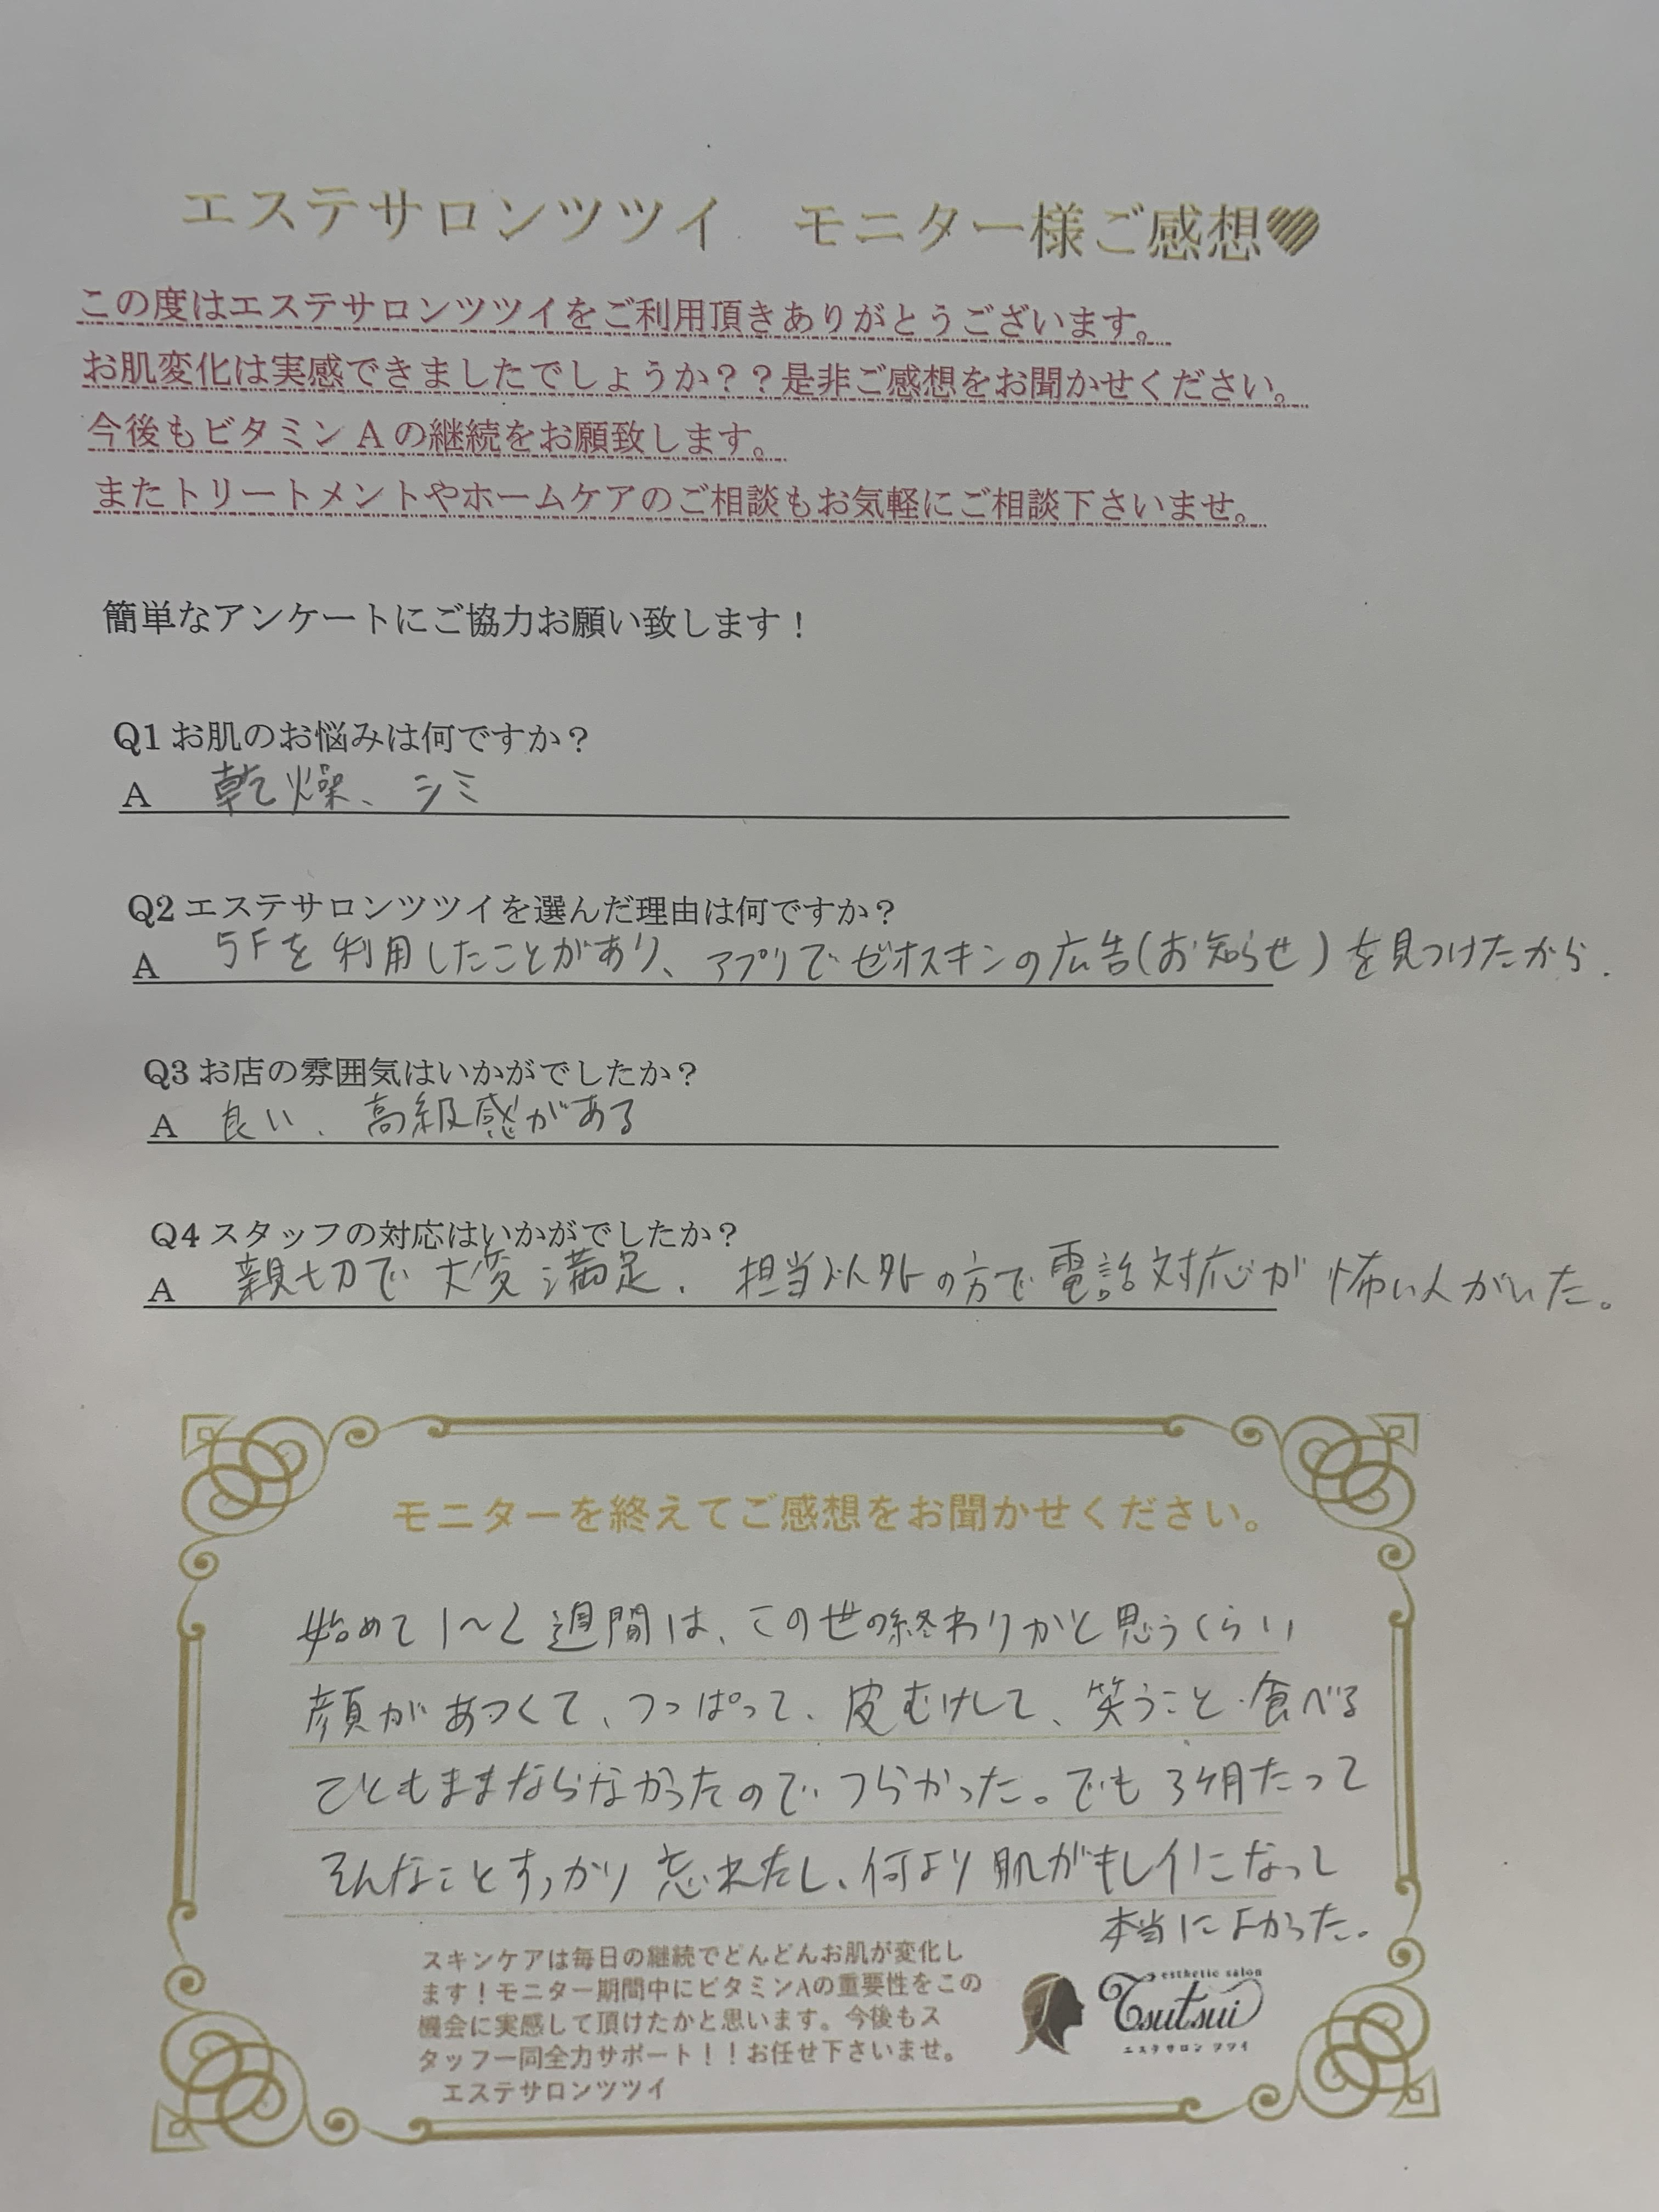 エステサロンツツイ　モニター様ご感想♥
この度はエステサロンツツイをご利用頂きありがとうございます。
お肌変化は実感できましたでしょうか？？是非ご感想をお聞かせください。
今後もビタミンAの継続をお願致します。
またトリートメントやホームケアのご相談もお気軽にご相談下さいませ。
簡単なアンケートにご協力お願い致します！
Q1お肌のお悩みは何ですか？
A　乾燥、シミ
Q2エステサロンツツイを選んだ理由は何ですか？
A　5Fを利用したことがあり、アプリでゼオスキンの広告(お知らせ)を見つけたから.
Q3お店の雰囲気はいかがでしたか？
A　良い、高級感がある
Q4スタッフの対応はいかがでしたか？
A　親切で大変満足. 担当以外の方で電話対応が怖い人がいた。
モニターを終えてご感想をお聞かせください。
始めて1～2週間は、この世の終わりかと思うくらい
顔があつくて、つっぱって、皮むけして、笑うこと・食べる
こともままならなかったので、つらかった。でも3ヶ月たって
そんなことすっかり忘れたし、何より肌がキレイになって
本当によかった。
スキンケアは毎日の継続でどんどんお肌が変化し
ます！モニター期間中にビタミンAの重要性をこの
機会に実感して頂けたかと思います。今後もス
タッフ一同全力サポート！！お任せ下さいませ。
エステサロンツツイ
esthetic salon
Tsutsui
エステサロン ツツイ